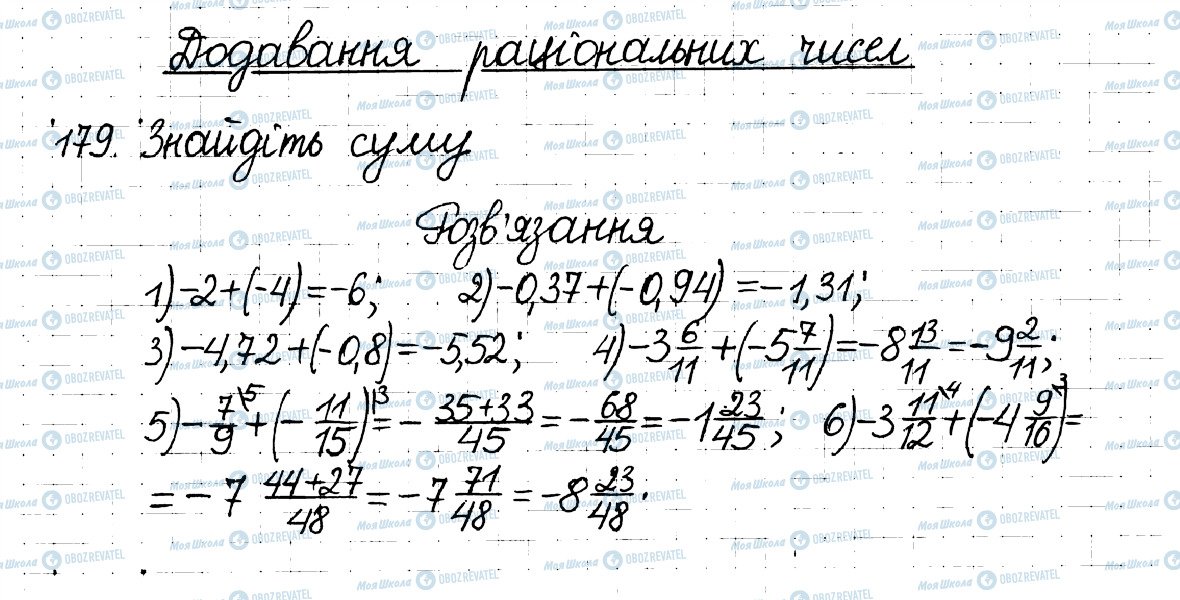 Додавання раціональних чисел
179. Знайдіть суму
Розв'язання
1) -2+(-4)=-6; 2) -0,37+(-0,94)=-1,31;
3) -4,72+(-0,8)=-5,52; 4) -3 6/11 +(-5 7/11)=-8 13/11=-9 2/11;
5) -7/9\5 +(-11/15)\3=- (35+33)/45=-68/45=-1 23/45; 6) -3 11/12\4 +(-4 9/16\3)=
=-7 (44+27)/48=-7 71/48=-8 23/48.